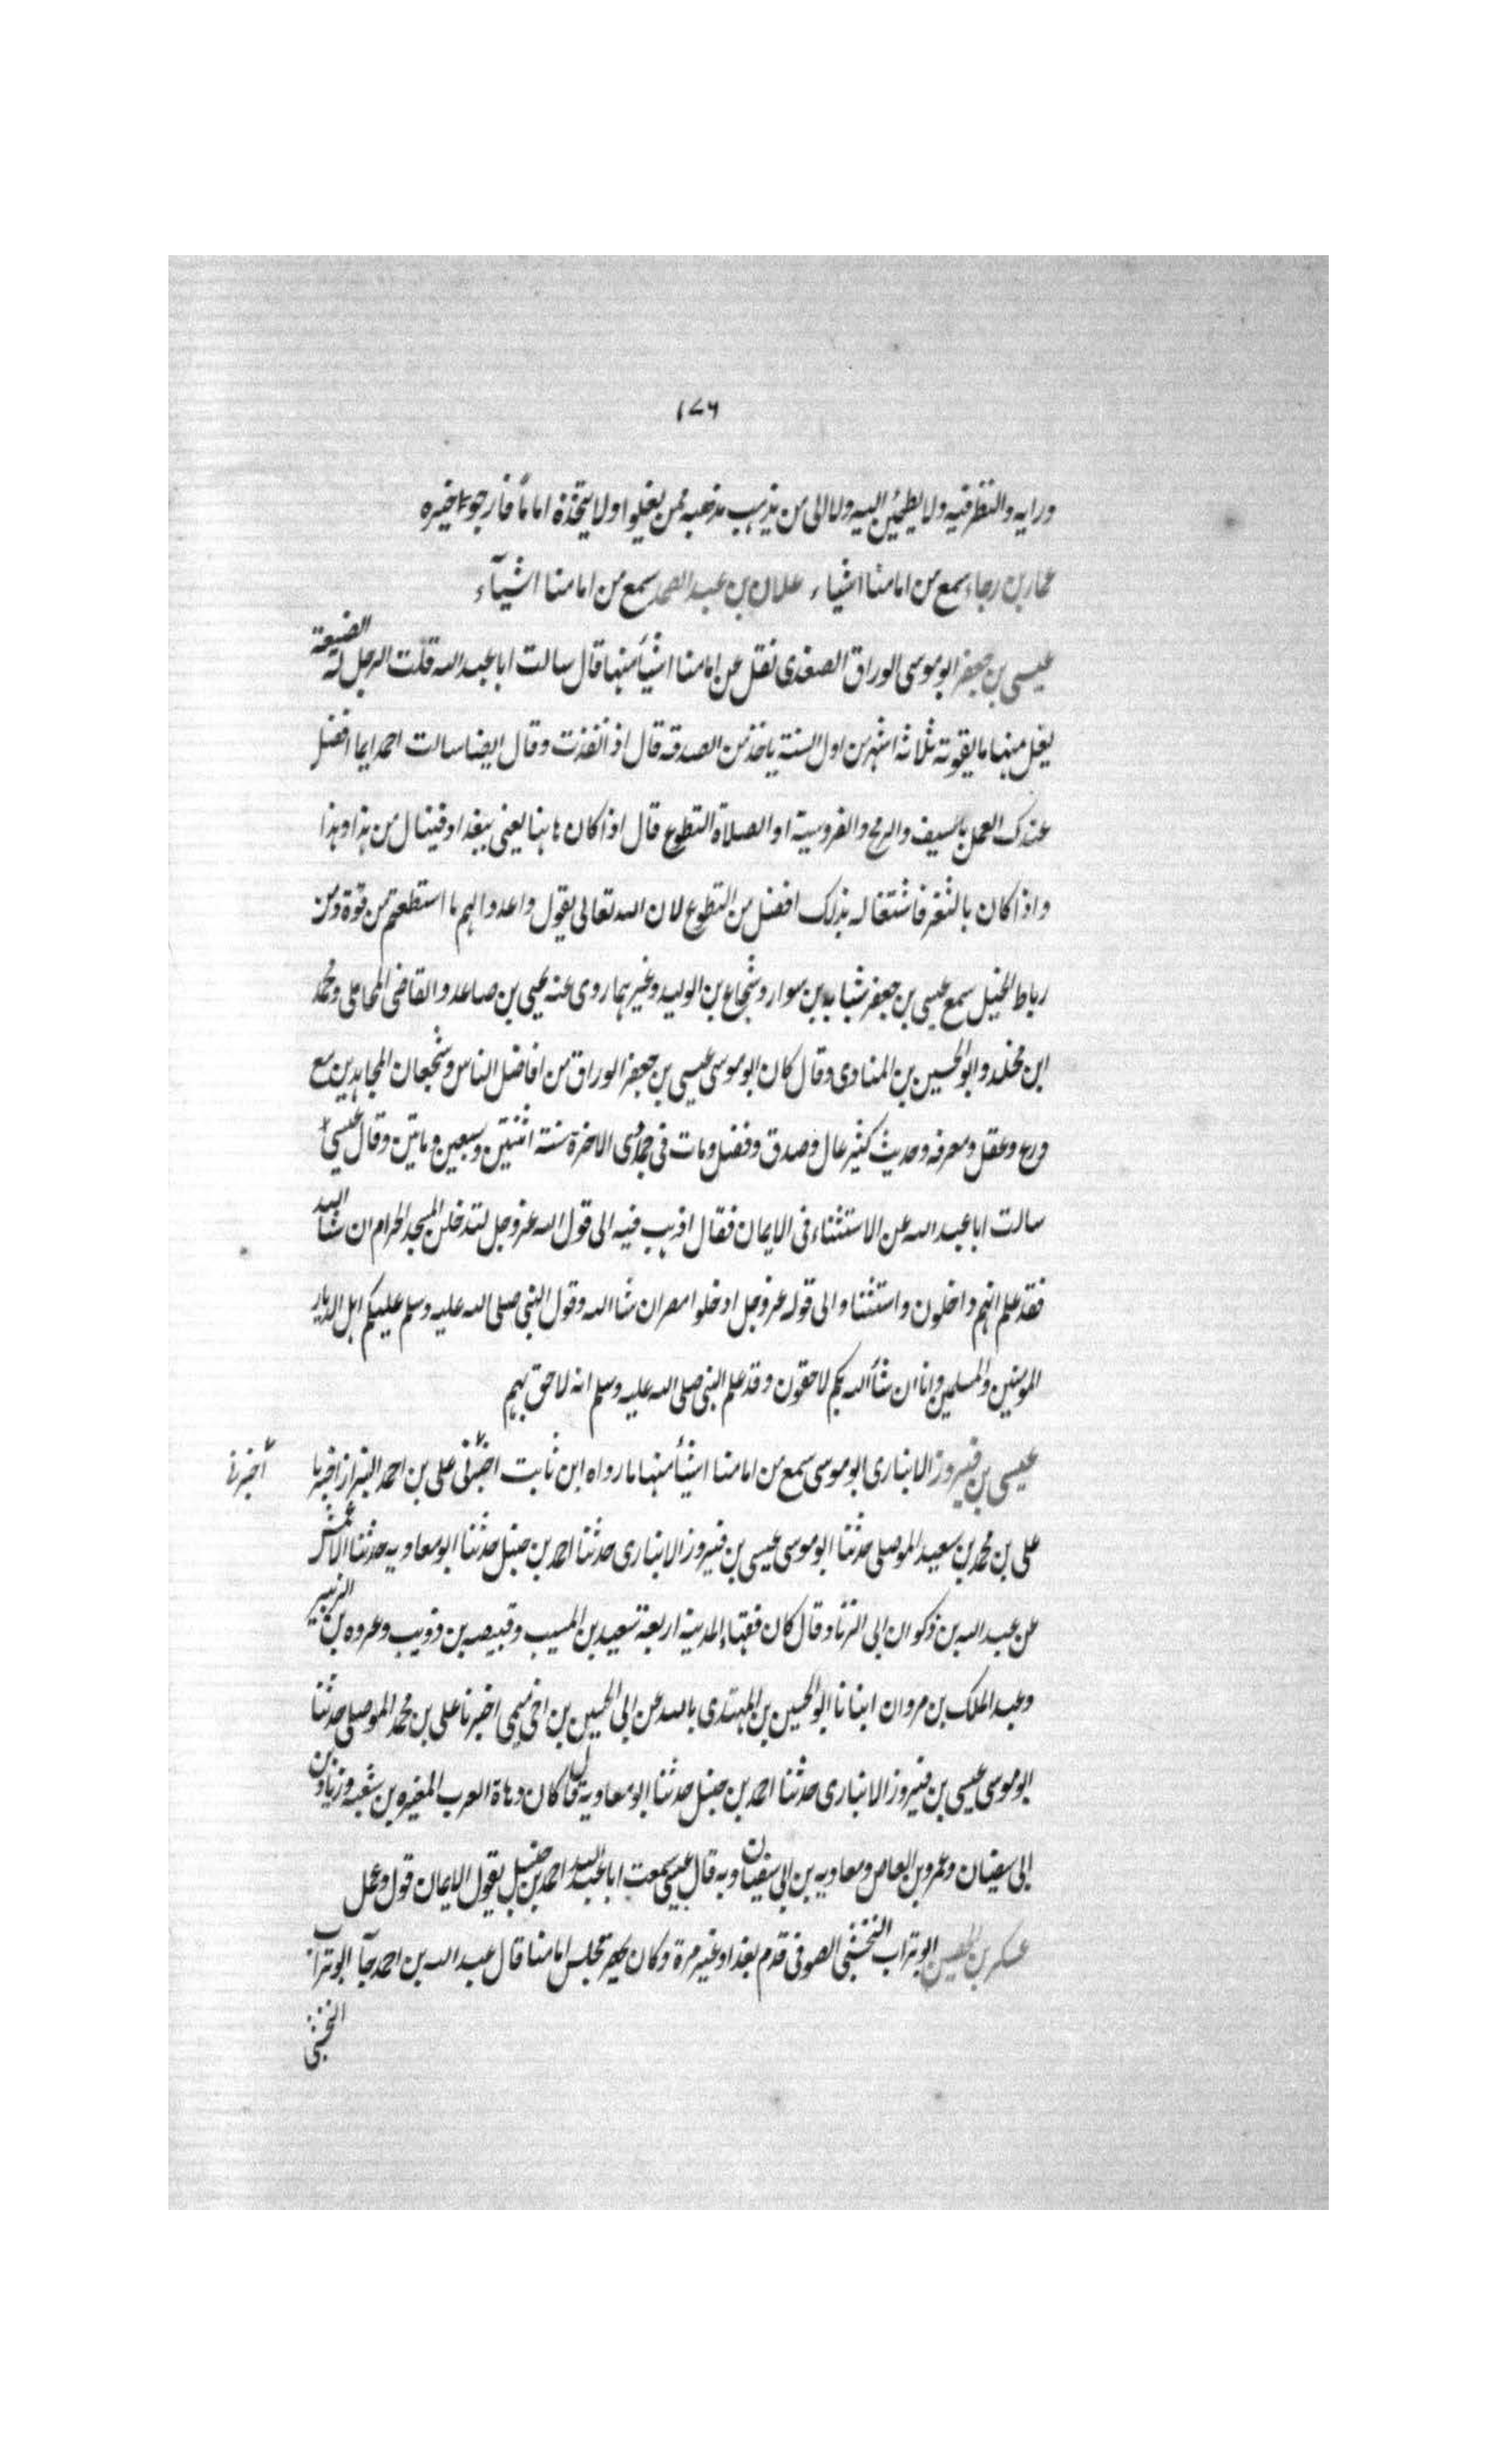 ١٧٦
ورايه والنظر فيه ولا يطمئن اليه ولا الى من يذهب مذهبه ممن يغلوا ولا يتخذه اماما فارجو له خيره
عمار بن رجاء سمع من امامنا اشياء علان بن عبد الصمد سمع من امامنا اشيآء
عيسى بن جعفر ابو موسى الوراق الصغدى نقل عن امامنا اشيأ منها قال سالت ابا عبد الله قلت الرجل له الضيعة
يغل منها ما يقوته ثلاثة اشهر من اول السنة ياخذ من الصدقه قال اذا نفذت وقال ايضا سالت احمد ايما افضل
عندك العمل بالسيف والرمح والفروسية او الصلاة التطوع قال اذا كان هاهنا يعنى ببغداد فينال من هذا وهذا
واذا كان بالثغر فاشتغاله بذلك افضل من التطوع لان الله تعالى يقول واعدوا لهم ما استطعتم من قوة ومن
رباط الخيل سمع عيسى بن جعفر شبابه بن سوار وشجاع بن الوليد وغيرهما روى عنه يحيى بن صاعد والقاضى المحاملى ومحمد
ابن مخلد وابو الحسين بن المنادى وقال كان ابو موسى عيسى بن جعفر الوراق من افاضل الناس وشجعان المجاهدين مع
ورع وعقل ومعرفه وحديث كثير عال وصدق وفضل ومات فى جمادى الاخرة سنة اثنتين وسبعين وماتين وقال عيسى
سالت ابا عبد الله عن الاستثناء فى الايمان فقال اذهب فيه الى قول الله عز وجل لتدخلن المسجد الحرام ان شا الله
فقد علم انهم داخلون واستثنا والى قوله عز وجل ادخلوا مصر ان شا الله وقول النبى صلى الله عليه وسلم عليكم اهل الديار
المومنين والمسلمين وانا ان شأ الله بكم لاحقون وقد علم النبى صلى الله عليه وسلم انه لاحق بهم
عيسى بن فيروز الانبارى ابو موسى سمع من امامنا اشيأ منها ما رواه ابن ثابت اخبرنى على بن احمد البزاز اخبرنا
أخبرنا
على بن محمد بن سعيد الموصلى حدثنا ابو موسى عيسى بن فيروز الانبارى حدثنا احمد بن حنبل حدثنا ابو معاويه حدثنا الاعمش
عن عبد الله بن ذكوان ابى الزناد قال كان فقهاء المدينة اربعة سعيد بن المسيب وقبيصه بن ذويب وعروه بن الزبير
وعبد الملك بن مروان انبانا ابو الحسين بن المهتدى بالله عن ابى الحسين بن اخى ميمى اخبرنا على بن محمد الموصلى حدثنا
ابو موسى عيسى بن فيروز الانبارى حدثنا احمد بن حنبل حدثنا ابو معاوية قال كان دهاة العرب المغيره بن شعبه وزياد بن
ابى سفيان وعمرو بن العاص ومعاويه بن ابى سفيان وبه قال عيسى سمعت ابا عبد الله احمد بن حنبل يقول الايمان قول وعمل
عسكر بن الحصين ابو تراب النخشبى الصوفى قدم بغداد غير مرة وكان يحضر مجلس امامنا قال عبد الله بن احمد جآ ابو تراب
النخشبى